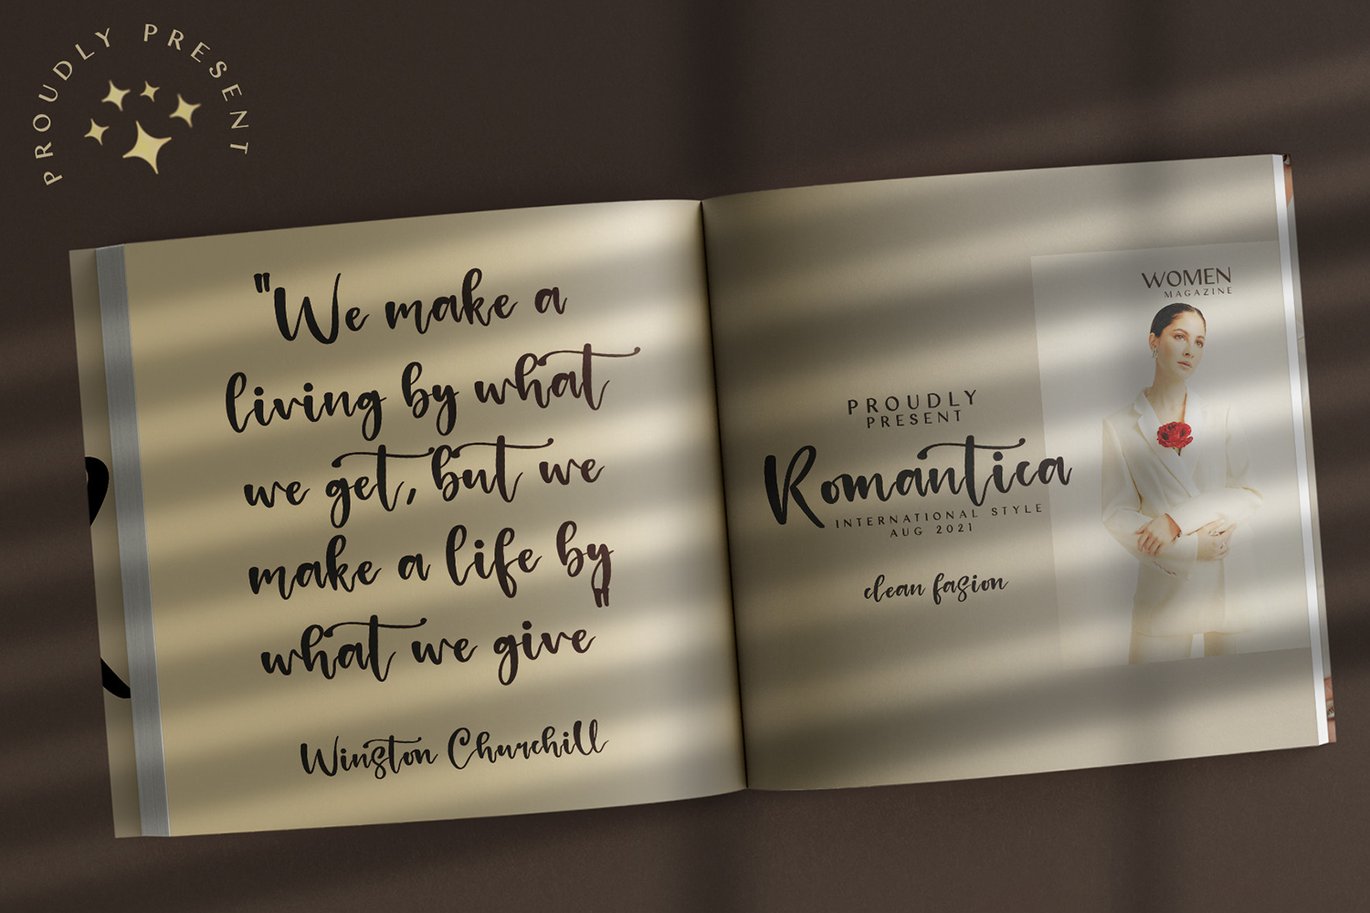 PROUDLY PRESENT
"We make a
living by what
we get, but we
make a life by
what we give"
Winston Churchill
PROUDLY
PRESENT
Romantica
INTERNATIONAL STYLE
AUG 2021
clean fasion
WOMEN
MAGAZINE